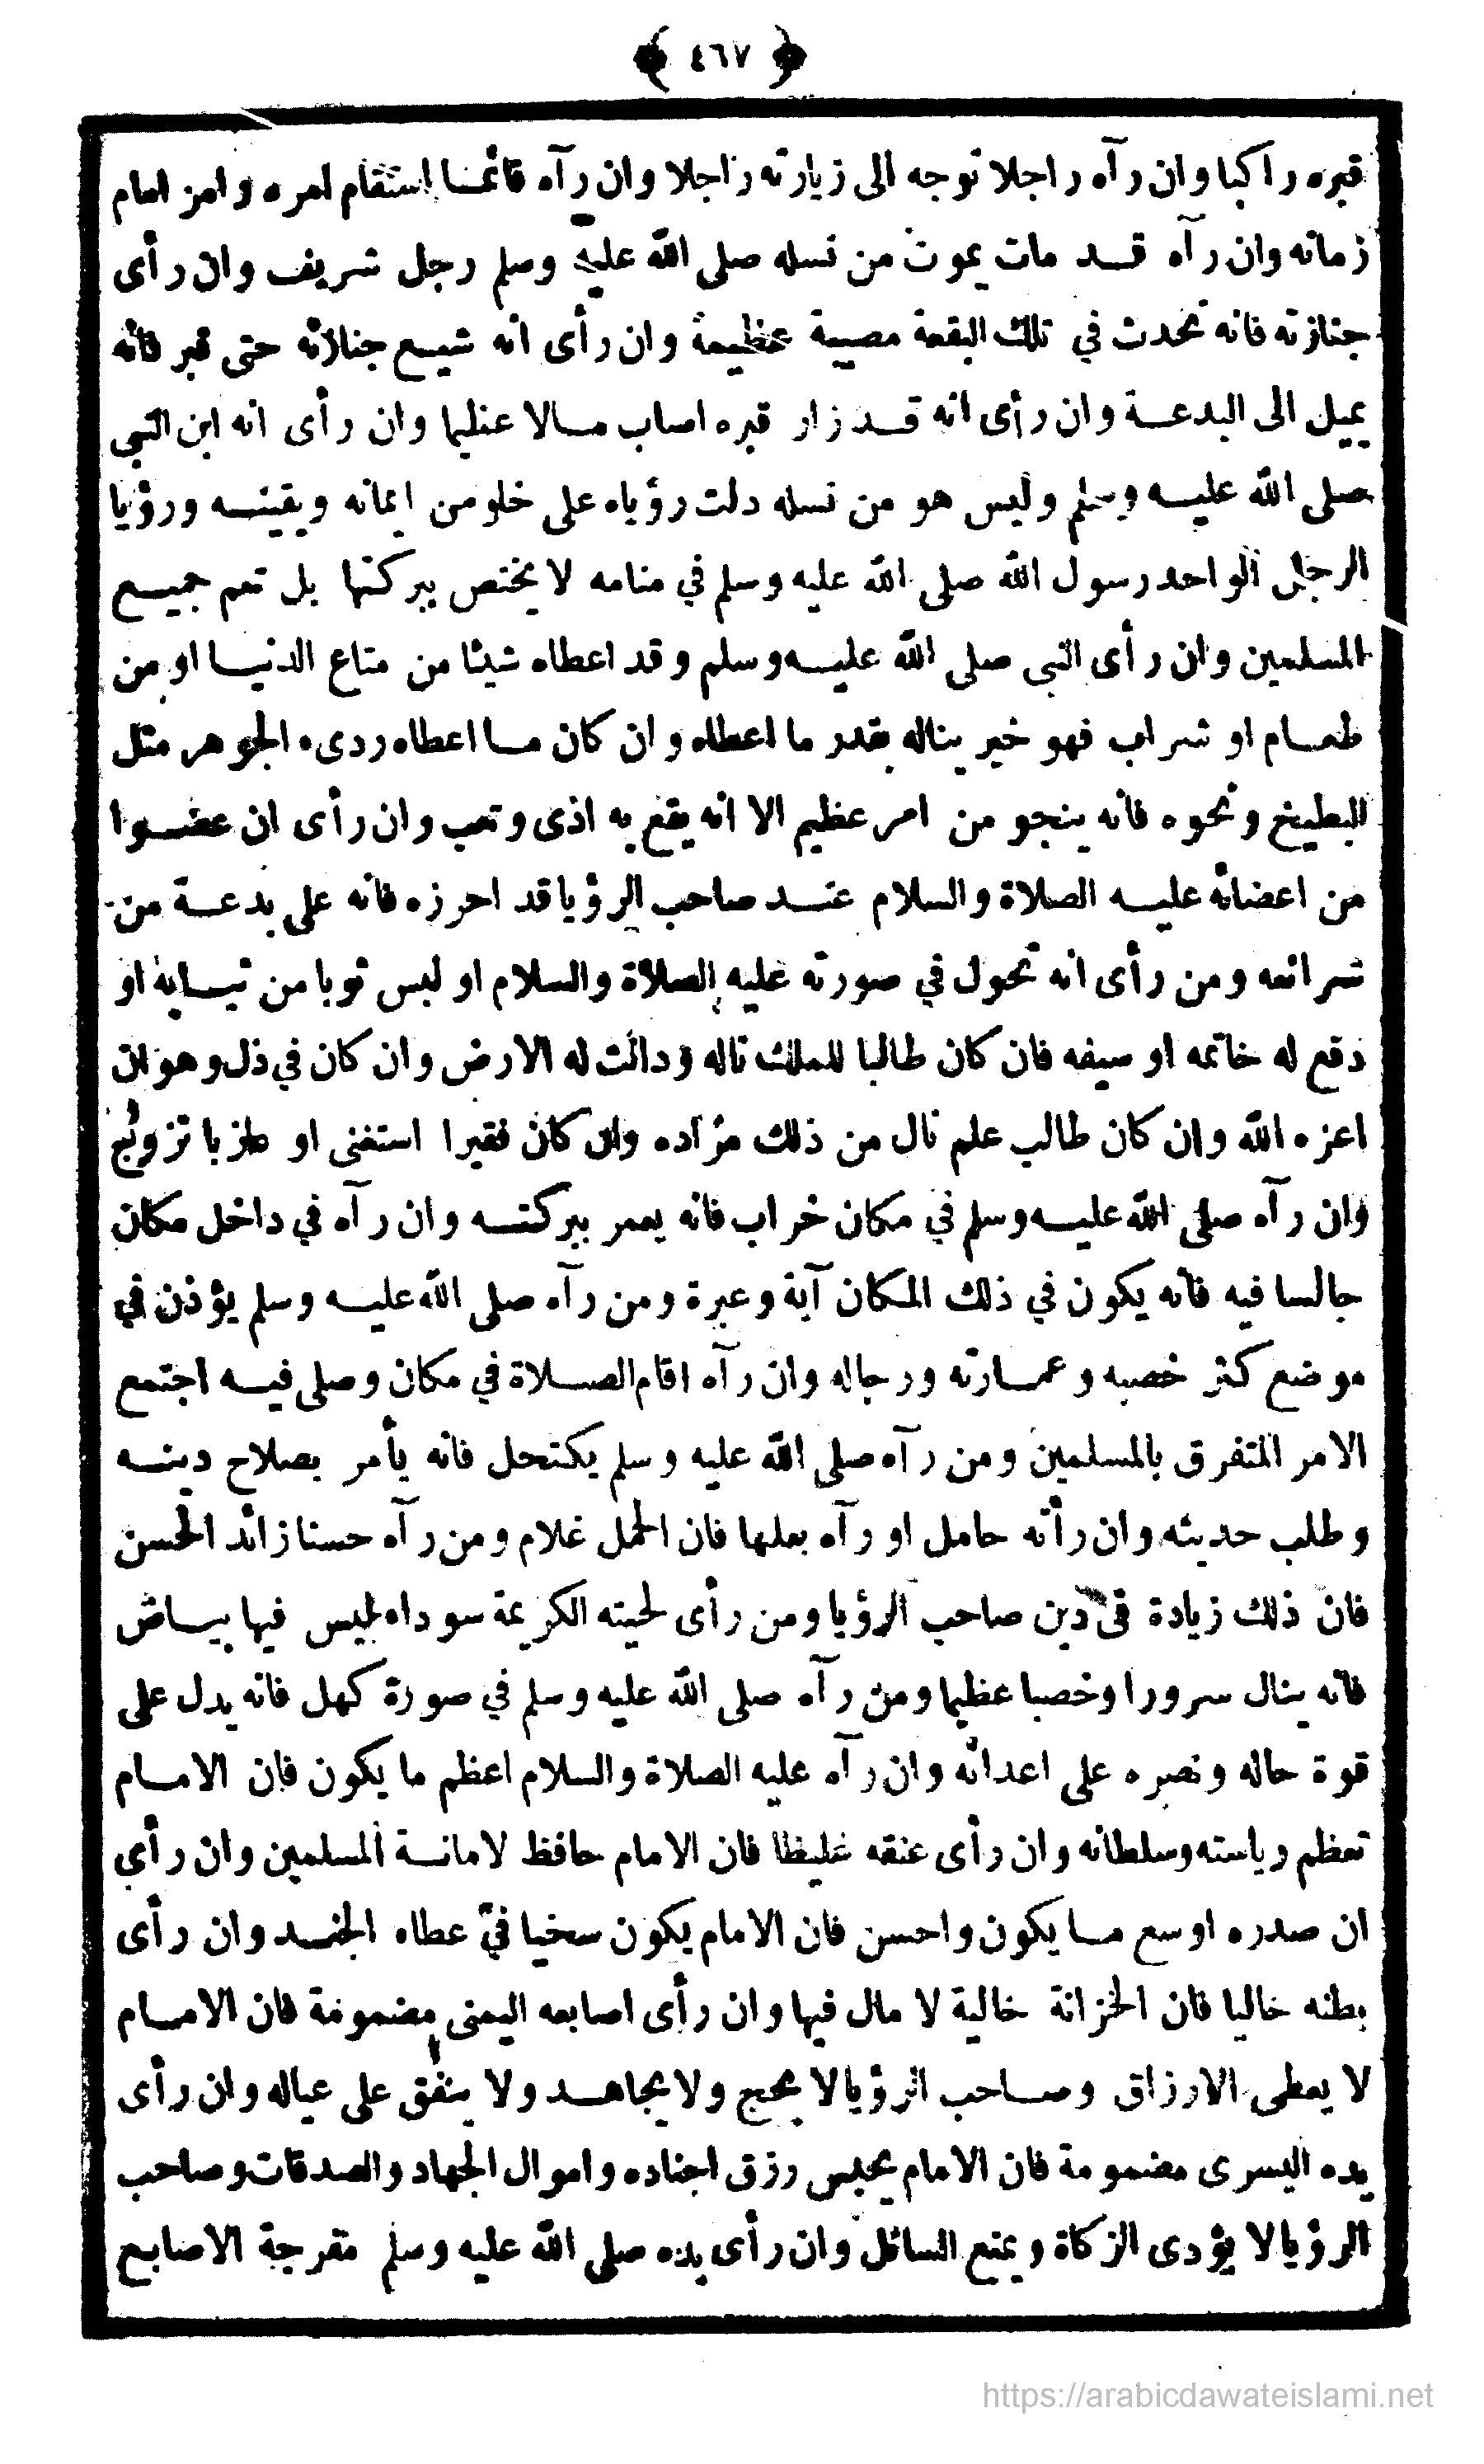 ﴿ ٤٦٧ ﴾
قبره راكبا وان رآه راجلا توجه الى زيارته راجلا وان رآه قائما استقام امره وامر امام
زمانه وان رآه قد مات يموت من نسله صلى الله عليه وسلم رجل شريف وان رأى
جنازته فانه تحدث في تلك البقعة مصيبة عظيمة وان رأى انه شيع جنازته حتى قبر فانه
يميل الى البدعة وان رأى انه قد زار قبره اصاب مالا عظيما وان رأى انه ابن النبي
صلى الله عليه وسلم وليس هو من نسله دلت رؤياه على خلو من ايمانه ويقينه ورؤيا
الرجل الواحد رسول الله صلى الله عليه وسلم في منامه لا يختص ببركتها بل تعم جميع
المسلمين وان رأى النبي صلى الله عليه وسلم وقد اعطاه شيئا من متاع الدنيا او من
طعام او شراب فهو خير يناله بقدر ما اعطاه وان كان ما اعطاه ردىء الجوهر مثل
البطيخ ونحوه فانه ينجو من امر عظيم الا انه يقع به اذى وتعب وان رأى ان عضوا
من اعضائه عليه الصلاة والسلام عند صاحب الرؤيا قد احرزه فانه على بدعة من
شرائعه ومن رأى انه تحول في صورته عليه الصلاة والسلام او لبس ثوبا من ثيابه او
دفع له خاتمه او سيفه فان كان طالبا للملك ناله ودانت له الارض وان كان في ذل وهوان
اعزه الله وان كان طالب علم نال من ذلك مراده وان كان فقيرا استغنى او عازبا تزوج
وان رآه صلى الله عليه وسلم في مكان خراب فانه يعمر ببركته وان رآه في داخل مكان
جالسا فيه فانه يكون في ذلك المكان آية وعبرة ومن رآه صلى الله عليه وسلم يؤذن في
موضع كثر خصبه وعمارته ورجاله وان رآه اقام الصلاة في مكان وصلى فيه اجتمع
الامر المتفرق بالمسلمين ومن رآه صلى الله عليه وسلم يكتحل فانه يأمر بصلاح دينه
وطلب حديثه وان رأته حامل او رآه بعلها فان الحمل غلام ومن رآه حسنا زائد الحسن
فان ذلك زيادة في دين صاحب الرؤيا ومن رأى لحيته الكريمة سوداء ليس فيها بياض
فانه ينال سرورا وخصبا عظيما ومن رآه صلى الله عليه وسلم في صورة كهل فانه يدل على
قوة حاله ونصره على اعدائه وان رآه عليه الصلاة والسلام اعظم ما يكون فان الامام
تعظم رياسته وسلطانه وان رأى عنقه غليظا فان الامام حافظ لامانة المسلمين وان رأى
ان صدره اوسع ما يكون واحسن فان الامام يكون سخيا في عطاه الجند وان رأى
بطنه خاليا فان الخزانة خالية لا مال فيها وان رأى اصابعه اليمنى مضمومة فان الامام
لا يعطى الارزاق وصاحب الرؤيا لا يحج ولا يجاهد ولا ينفق على عياله وان رأى
يده اليسرى مضمومة فان الامام يحبس رزق اجناده واموال الجهاد والصدقات وصاحب
الرؤيا لا يؤدى الزكاة ويمنع السائل وان رأى يده صلى الله عليه وسلم مفرجة الاصابع
https://arabicdawateislami.net